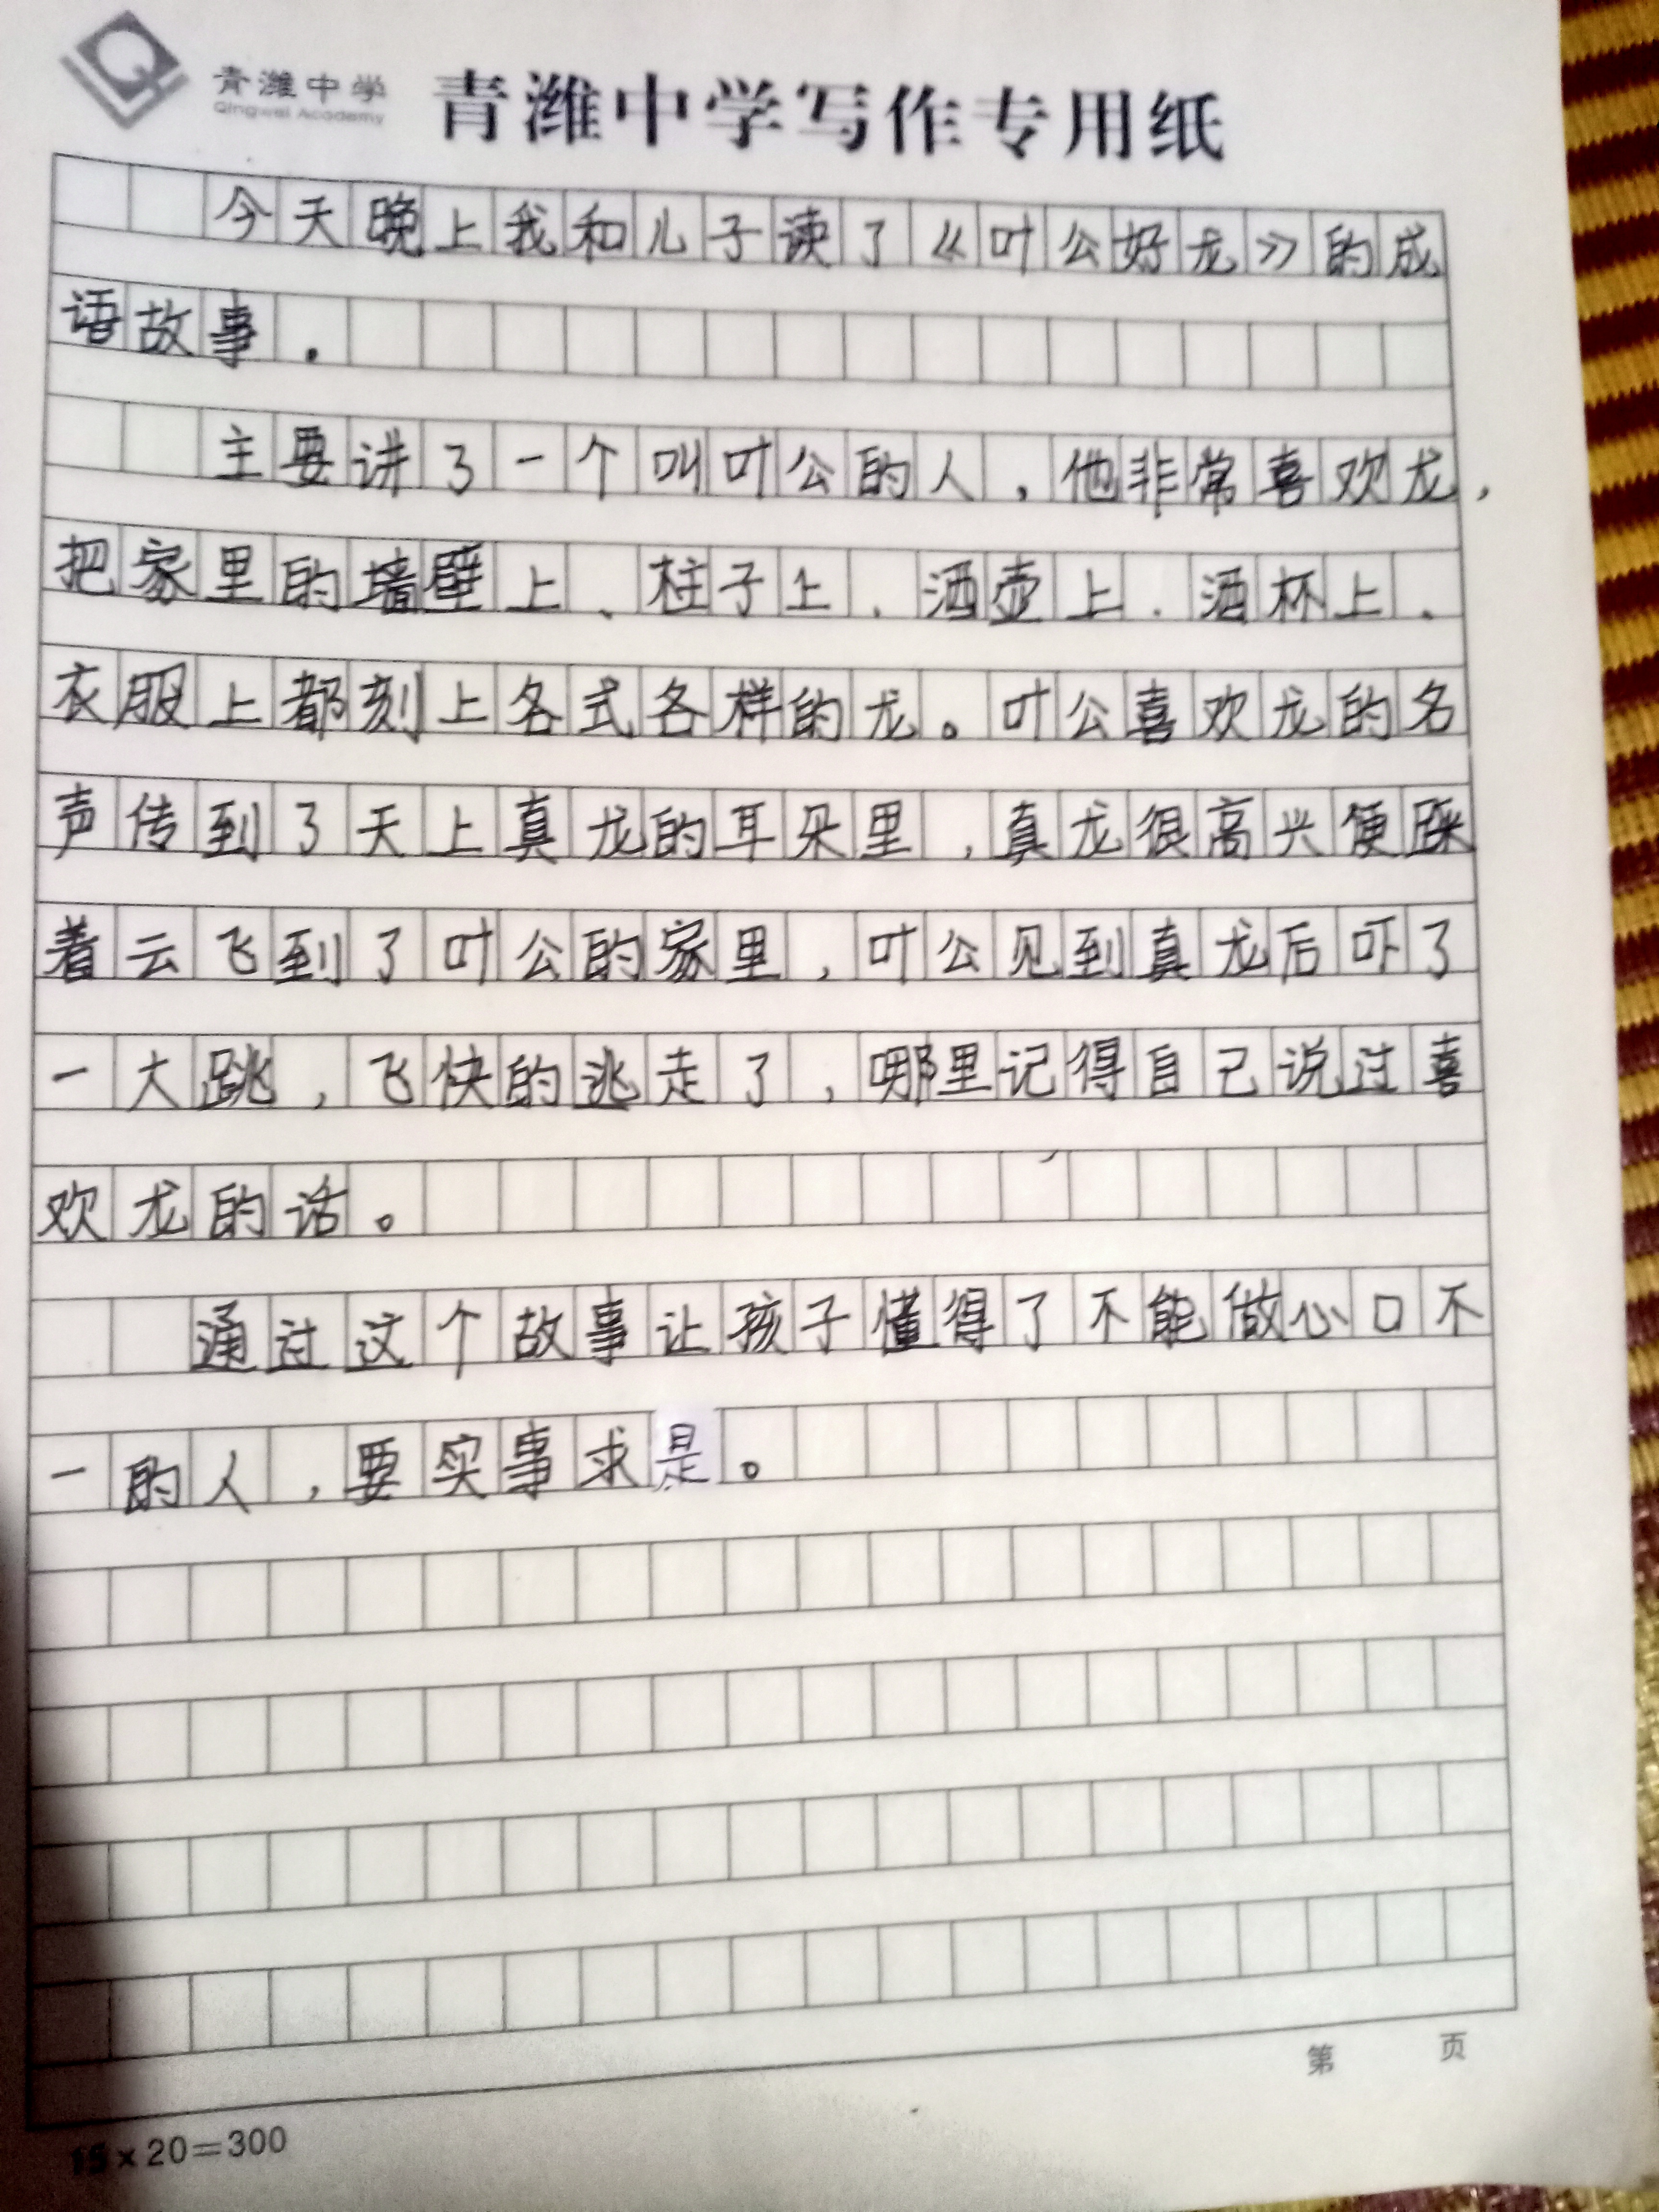 青潍中学
Qingwei Academy
青潍中学写作专用纸
今天晚上我和儿子读了《叶公好龙》的成
语故事.
主要讲了一个叫叶公的人,他非常喜欢龙,
把家里的墙壁上、柱子上、洒壶上、洒杯上、
衣服上都刻上各式各样的龙。叶公喜欢龙的名
声传到了天上真龙的耳朵里,真龙很高兴便踩
着云飞到了叶公的家里,叶公见到真龙后吓了
一大跳,飞快的逃走了,哪里记得自己说过喜
欢龙的话。
通过这个故事让孩子懂得了不能做心口不
一的人,要实事求是。
第 页
15×20=300